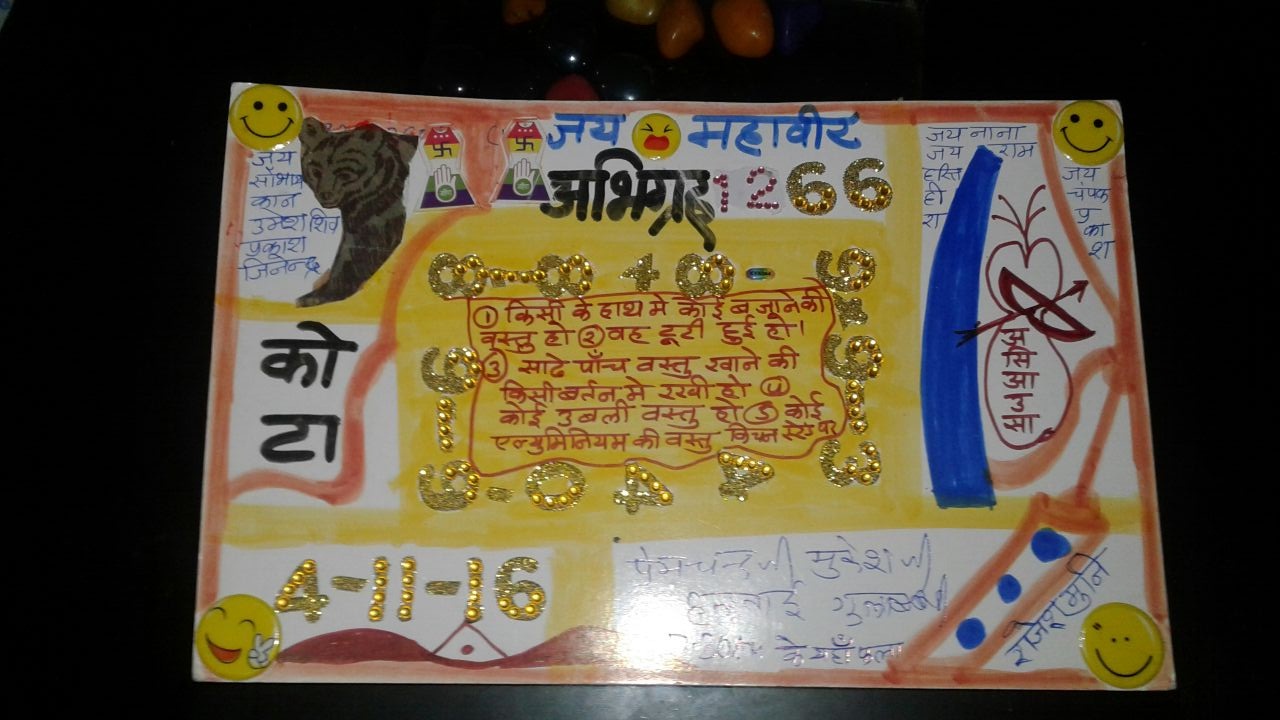 जय महावीर
अभिग्रह 1266
जय
सोभाग
कान
उमेश शिव
प्रकाश
जिनेन्द्र
जय नाना
जय राम
हस्ति
ही
रा
जय
चंपक
प्र
का
श
को
टा
① किसी के हाथ मे कोई बजाने की
वस्तु हो ② वह टूटी हुई हो।
③ साढे पाँच वस्तु खाने की
किसी बर्तन मे रखी हो ④
कोई उबली वस्तु हो ⑤ कोई
एल्युमिनियम की वस्तु किचन स्टेण्ड पर
अ
सि
आ
उ
सा
4-11-16
प्रेमचन्द जी मुकेश जी
के यहाँ फला
राजेश मुनि